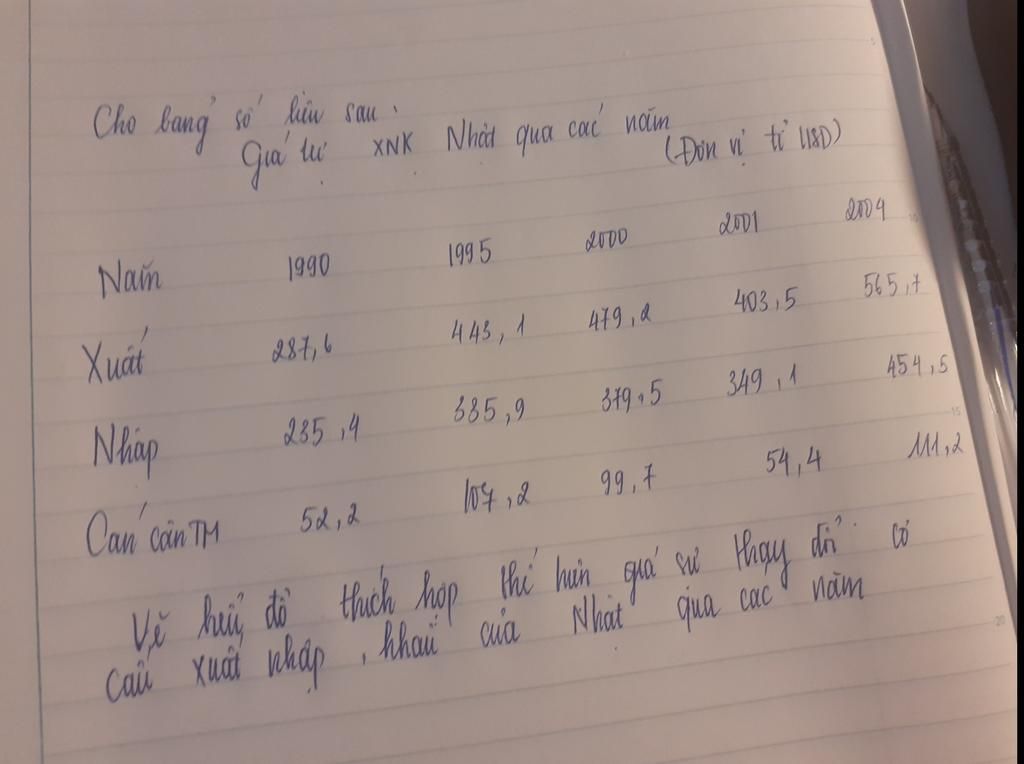 Cho bảng số liệu sau:
Giá trị XNK Nhật qua các năm
(Đơn vị tỉ USD)
Năm 1990 1995 2000 2001 2004
Xuất 287,6 443,1 479,2 403,5 565,7
Nhập 235,4 335,9 379,5 349,1 454,5
Cán cân TM 52,2 107,2 99,7 54,4 111,2
Vẽ biểu đồ thích hợp thể hiện giá sự thay đổi cơ
cấu xuất nhập khẩu của Nhật qua các năm